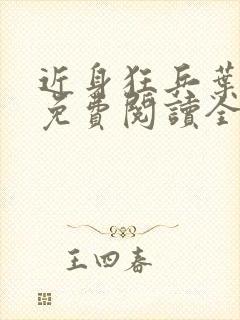 近身狂兵葉
免費閱讀全
王四春